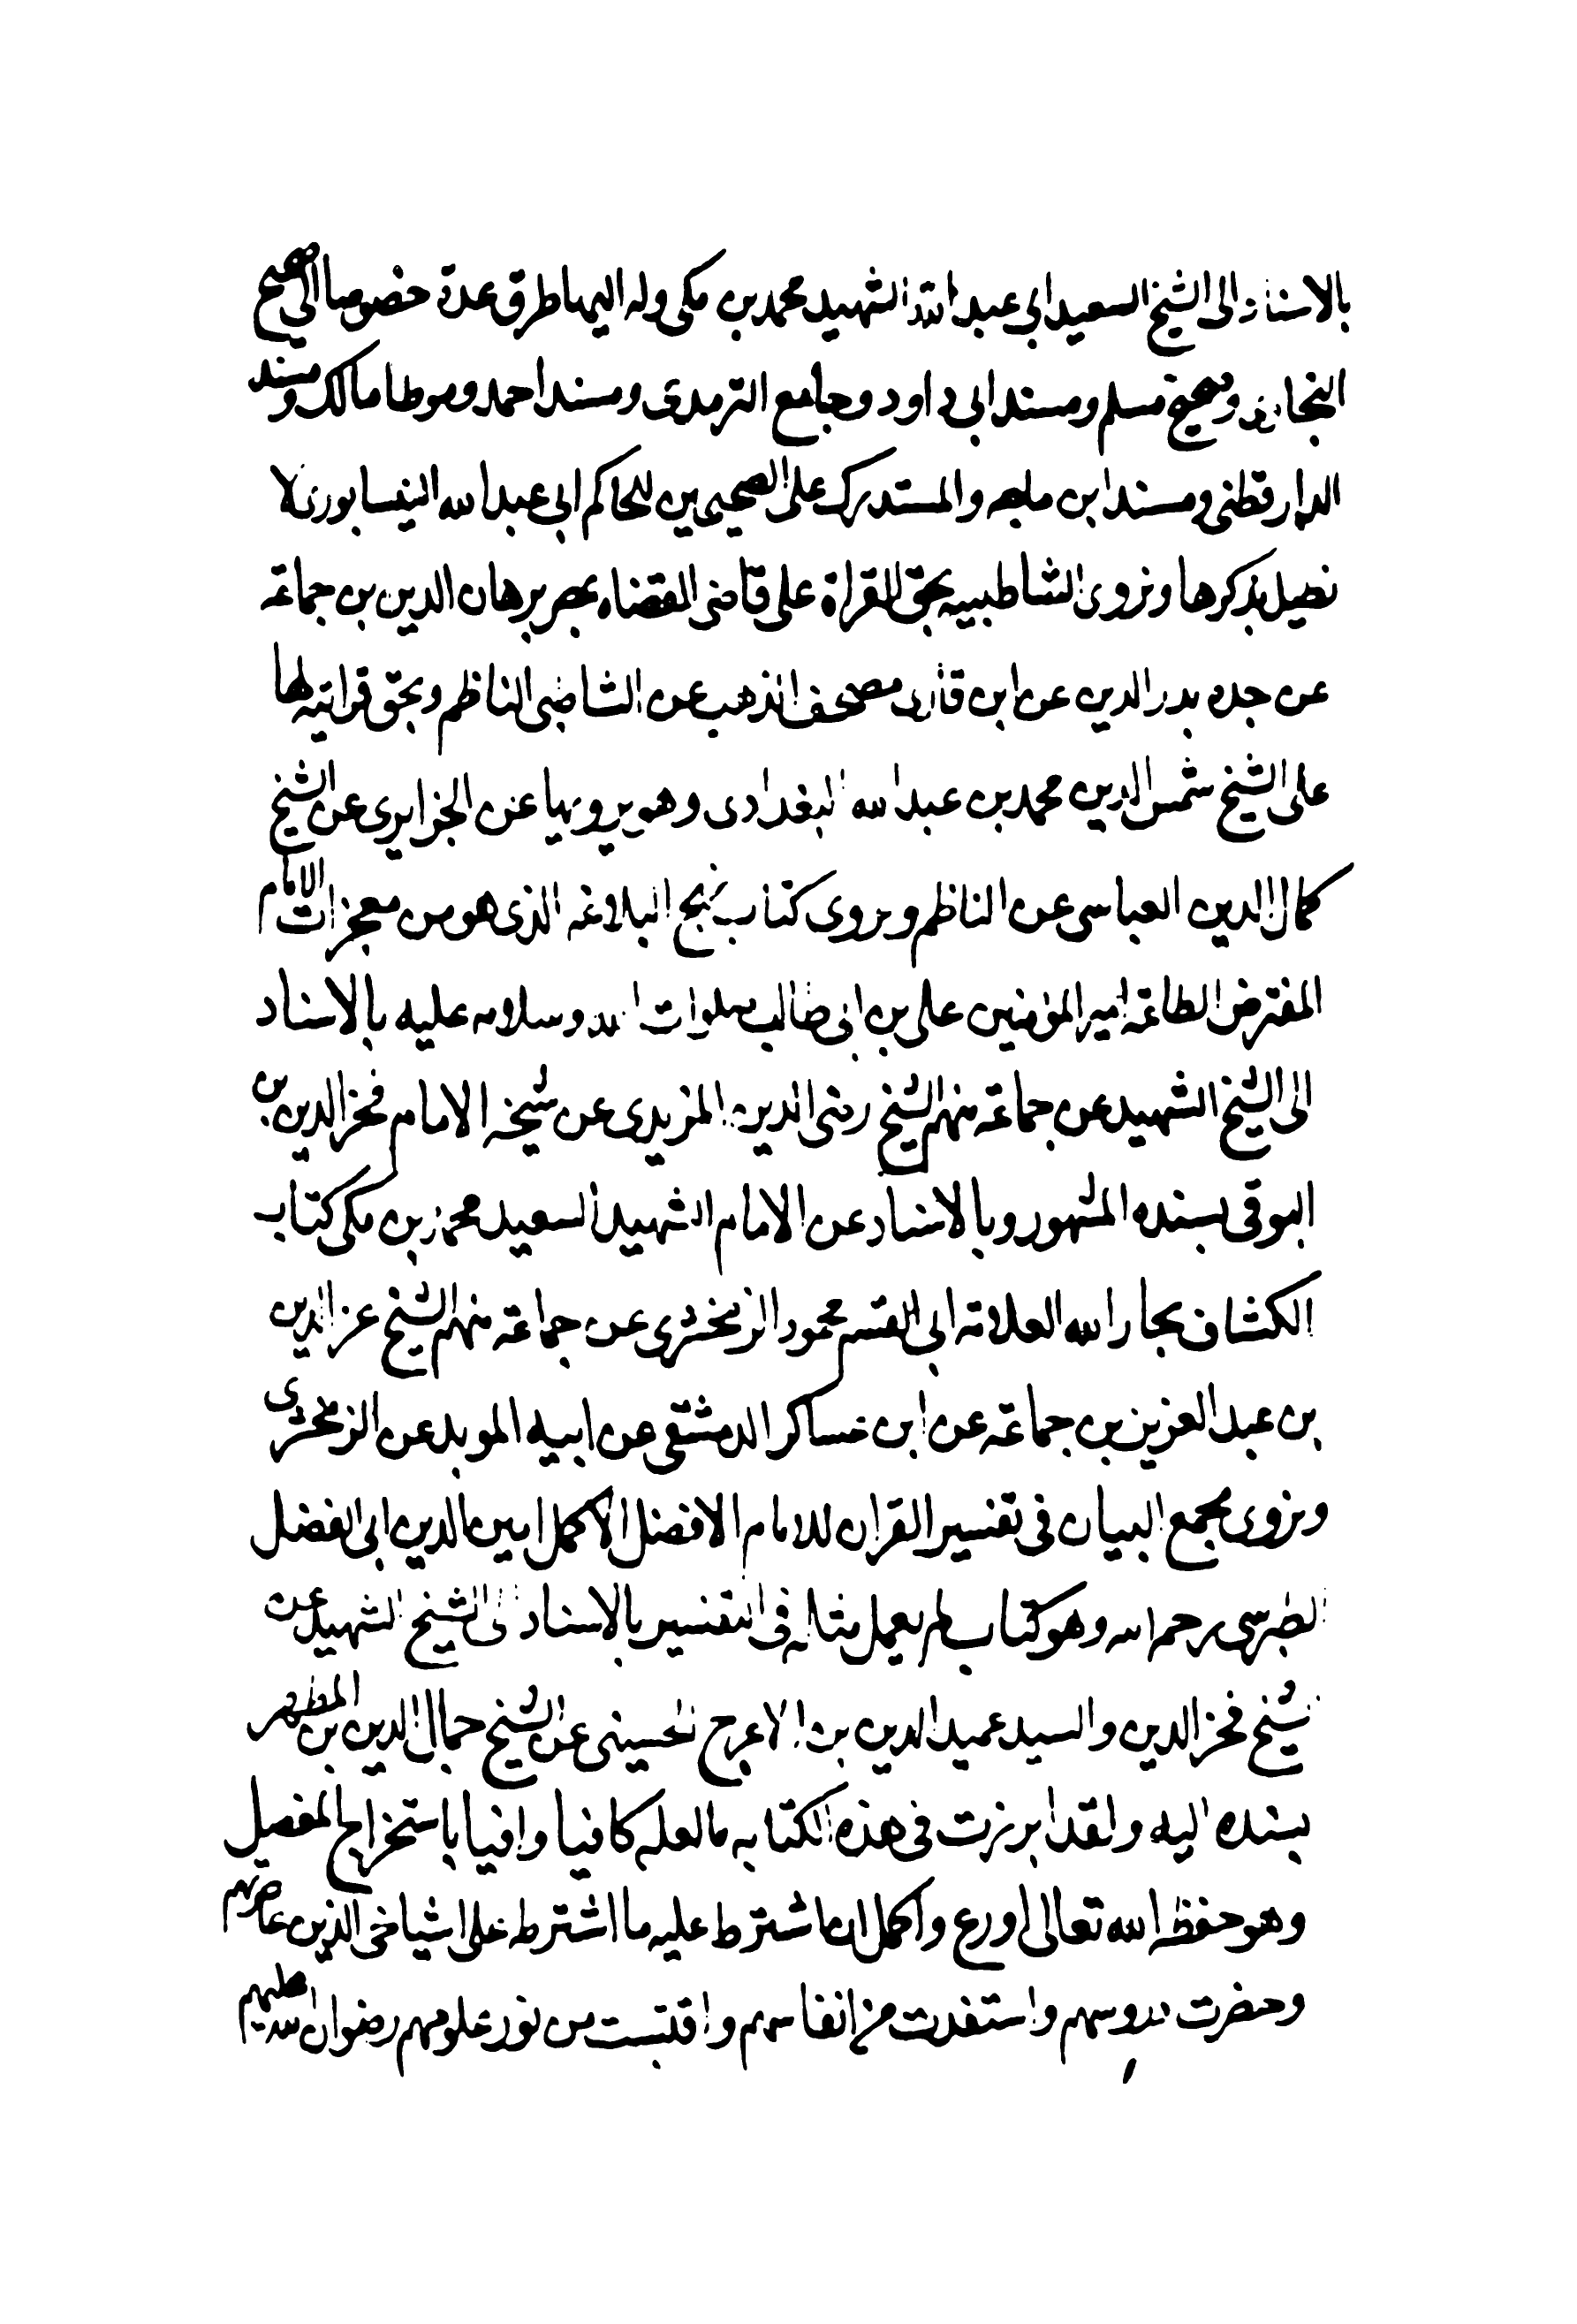 بالاسناد الى الشيخ السعيد ابى عبد الله الشهيد محمد بن مكى وله اليها طرق عدة خصوصا الى صحيح
البخارى وصحيح مسلم ومسند ابى داود وجامع الترمدى ومسند احمد وموطا مالك ومسند
الدار قطنى ومسند ابن ماجه والمستدرك على الصحيحين للحاكم ابى عبد الله النيسابورى لا
نطيل بذكرها ونروى الشاطبيه بحق القراة على قاضى القضاه بمصر برهان الدين بن جماعة
عن جده بدر الدين عن ابن قارى مصحف الذهب عن الشاطبى الناظم وبحق قراتيه لها
على الشيخ شمس الدين محمد بن عبد الله البغدادى وهو يرويها عن الجزايرى عن الشيخ
كمال الدين العباسى عن الناظم ويروى كتاب نهج البلاغه الذى هو من معجزات الامام
المفترض الطاعة امير المؤمنين على بن ابى طالب صلوات الله وسلامه عليه بالاسناد
الى الشيخ الشهيد عن جماعة منهم الشيخ رضى الدين المزيدى عن شيخه الامام فخر الدين بن
البوقى بسنده المشهور وبالاسناد عن الامام الشهيد السعيد محمد بن مكى كتاب
الكشاف بجار الله العلامة ابى القسم محمود الزمخشرى عن جماعة منهم الشيخ عز الدين
بن عبد العزيز بن جماعة عن ابن عساكر الدمشقى عن ابيه الموبد عن الزمخشرى
ونروى مجمع البيان فى تفسير القران للامام الافضل الاكمل امين الدين ابى الفضل
الطبرسى رحمه الله وهو كتاب لم يعمل مثاله فى التفسير بالاسناد الى الشيخ الشهيد عن
الشيخ فخر الدين والسيد عميد الدين بن الاعرج الحسينى عن الشيخ جمال الدين بن المطهر
بسنده اليه ولقد ابرزت فى هذه الكتابه مالعله كافيا وافيا باستخراج المفصل
وهو حفظه الله تعالى اورع واكمل ان ما شترط عليه ما اشترط على اشياخى الذين عاصرتهم
وحضرت دروسهم واستفدت من انفاسهم واقتبست من نور علومهم رضوان الله عليهم